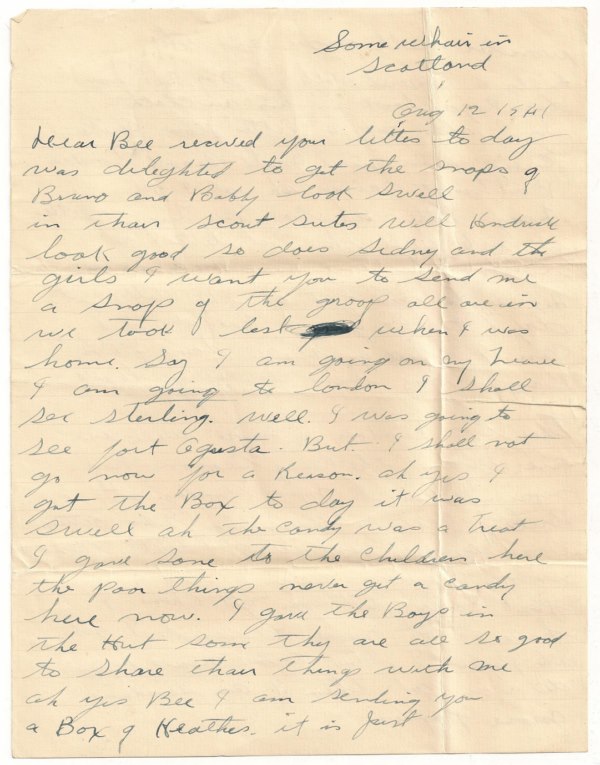 Some whair in
Scotland
Aug 12 1941
Dear Bee recived your letter to day
was deleghted to get the snaps of
Bruno and Bobby look swell
in thair scout sutes will Kendrick
look good so does Sidney and the
girls I want you to send me
a snap of the groop all are in
we took last when I was
home. Say I am going on my leave
I am going to london I shall
see sterling. well. I was going to
see fort Ogusta. But. I shall not
go now for a Reason. ah yes I
got the Box to day it was
swell ah the candy was a Treat
I gave some to the children here
the poor things never get a candy
here now. I gave the Boys in
the Hut some thy are all so good
to share thair things with me
ah yes Bee I am sending you
a Box of Heather. it is just